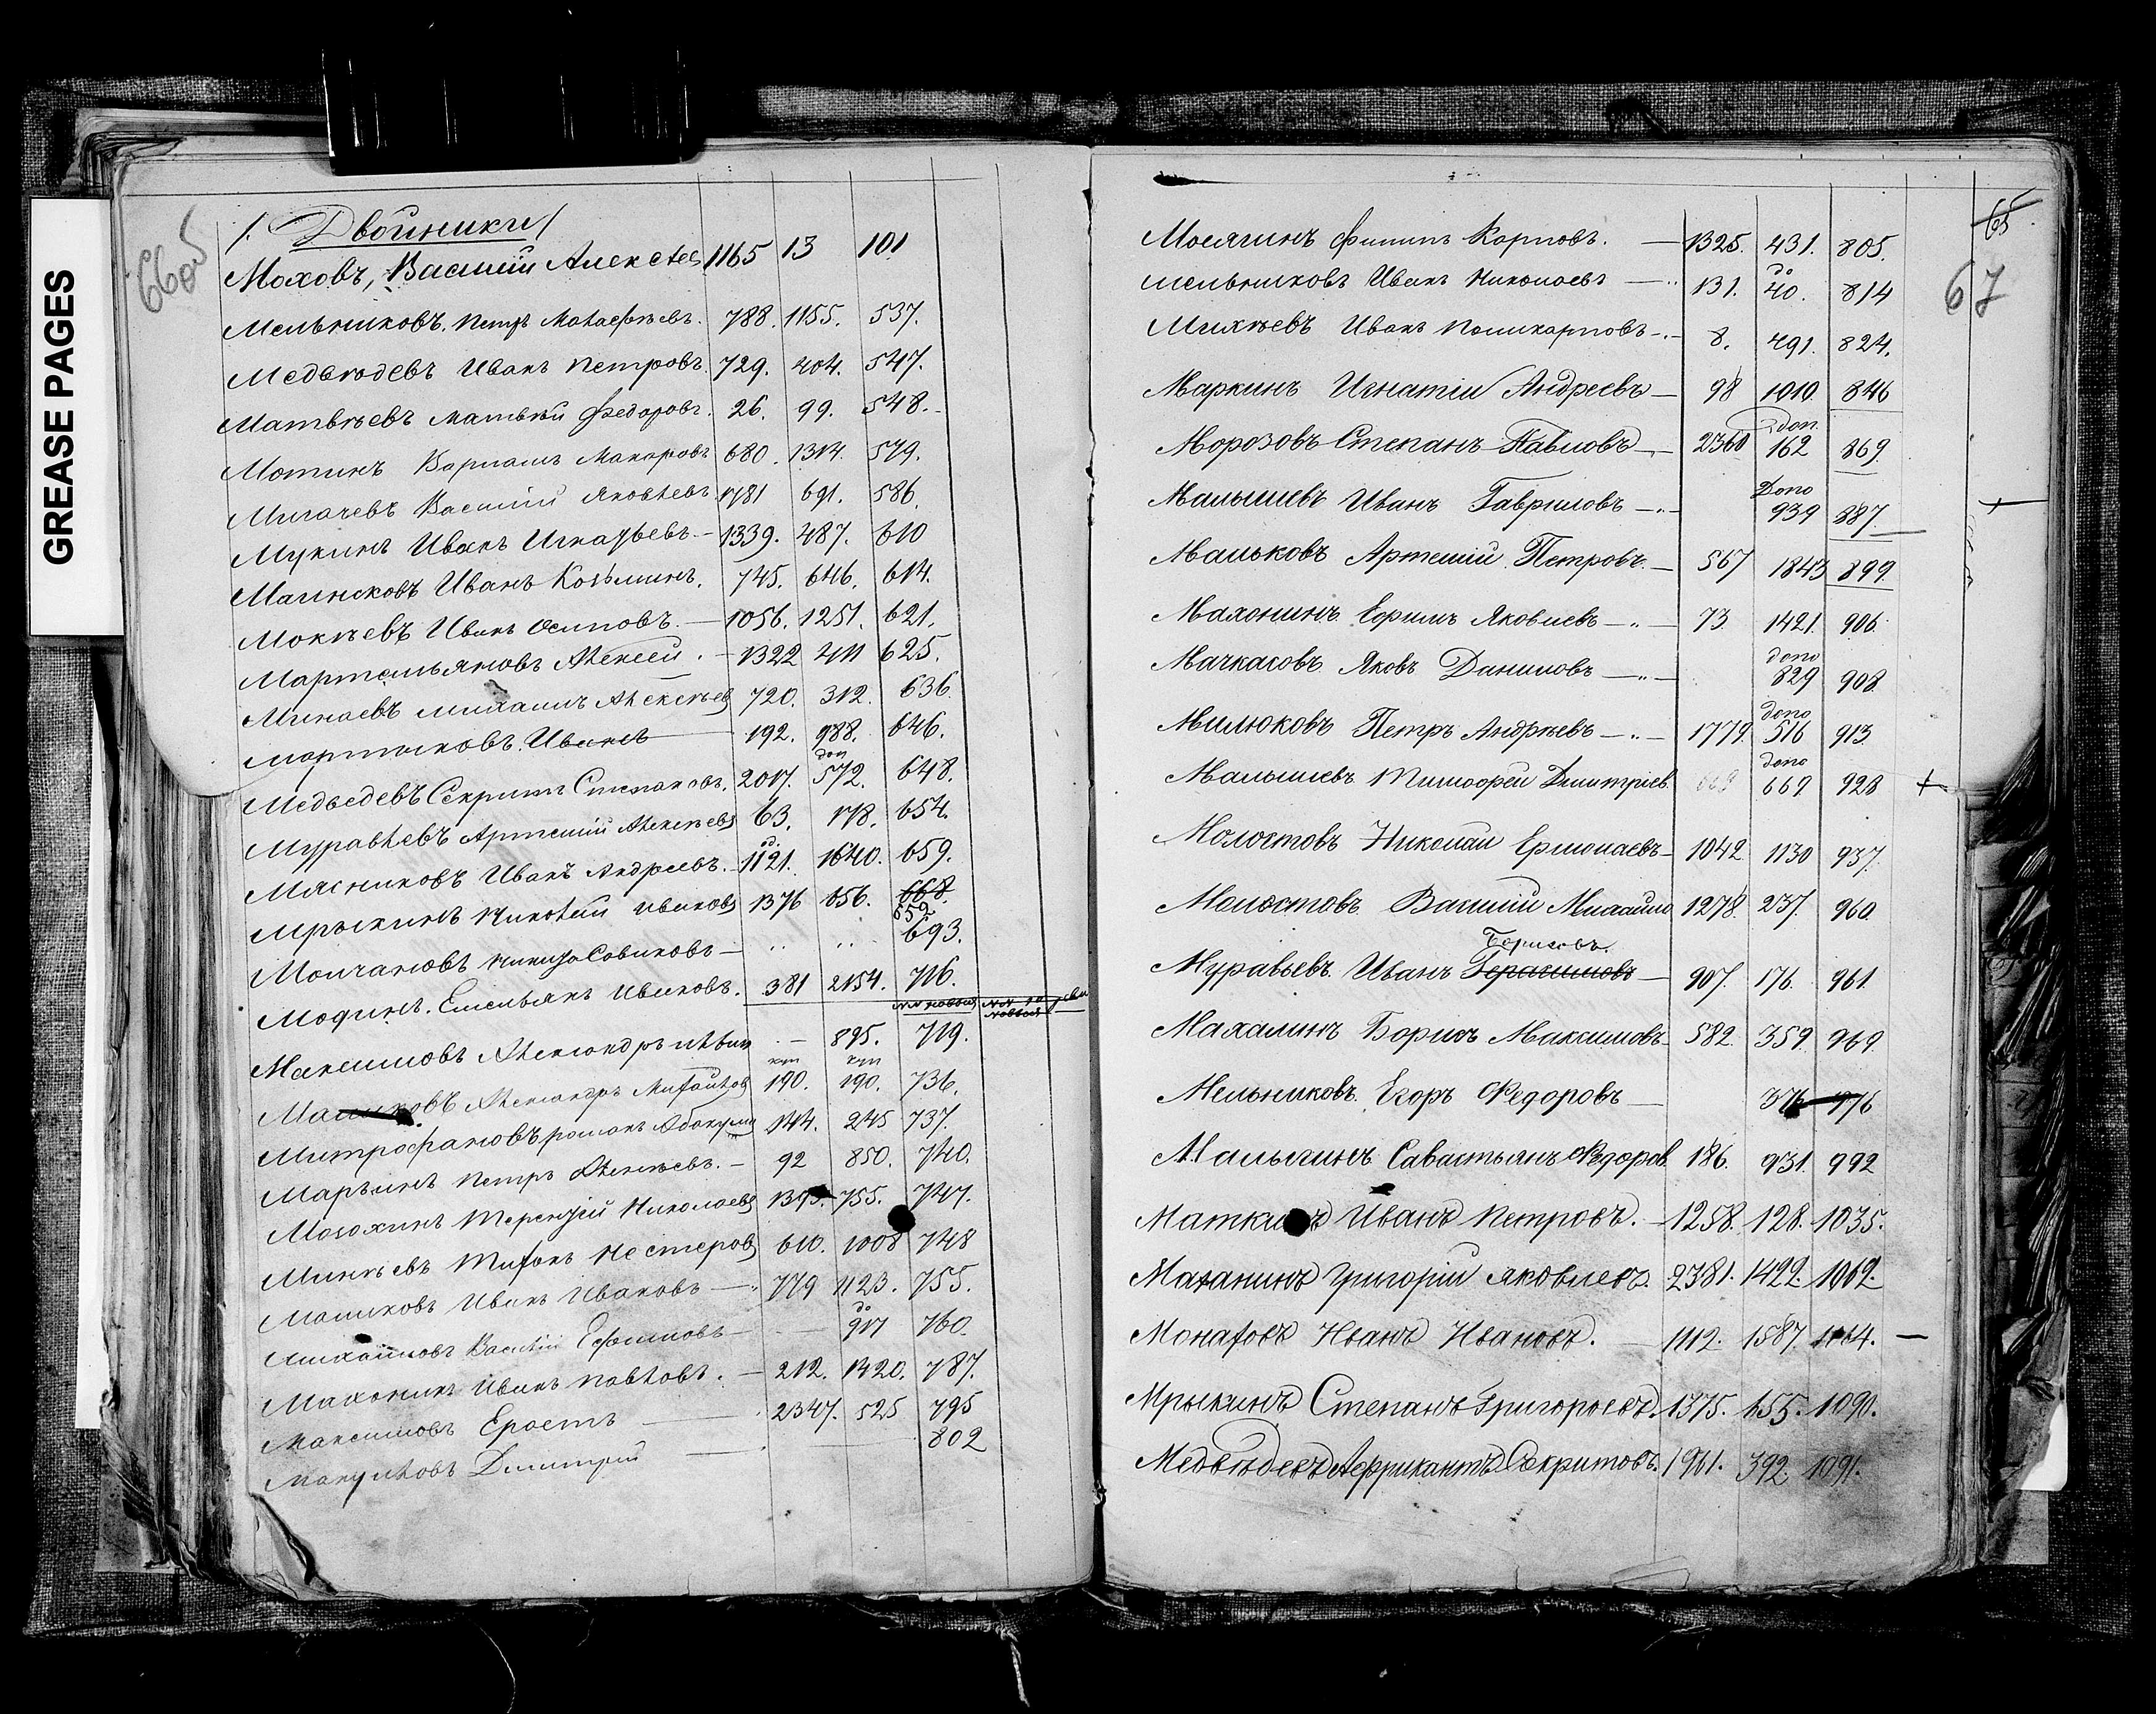 GREASE PAGES
66об
/. Двойники /
Моховъ, Василій Алексѣев 1165 13 101
Мельниковъ. Петръ Матвѣевъ. 788. 1155. 537.
Медвѣдевъ Иванъ Петровъ. 729. 404. 547.
Матвѣевъ Матвѣй Федоровъ. 26. 99. 548.
Мотинъ Варламъ Макаровъ 680. 1314. 579.
Мигачевъ Василій Яковлевъ. 1781 691. 586.
Мукинъ Иванъ Игнатьевъ. 1339. 487. 610
Малиновъ Иванъ Козьминъ. 745. 646. 614.
Мокѣевъ Иванъ Осиповъ. 1056. 1251. 621.
Мартемьяновъ Алексѣй. 1322 411 625.
Минаевъ Михаилъ Алексѣев 720. 312. 636.
Мартышковъ. Иванъ 192. 988. 646.
доп
Медведевъ Секритъ Степановъ. 2017. 572. 648.
Муравлевъ Артемій Алексѣев 63. 178. 654.
Мясниковъ Иванъ Андреевъ. 1121. 1640. 659.
Мрыкинъ Николай Иванов 1376 656. 668.
659
Молчановъ Никита Савиновъ 693.
Модинъ. Емельянъ Ивановъ. 381 2154. 716.
NN новыя
Максимовъ Александръ Львов 895. 719.
куп куп
Маликовъ Александръ Михайлов 190. 190. 736.
Митрофановъ Романъ Абакумов 144. 245 737.
Марьинъ Петръ Алексѣевъ. 92 850. 740.
Мосохинъ Терентій Николаев 1395. 755. 747.
Минѣевъ Тихонъ Нестеров 610. 1008 748
Маликовъ Иванъ Ивановъ 779 1123. 755.
до
Михайловъ Василій Ефимовъ 917 760.
Махонинъ Иванъ Павловъ. 212. 1420. 787.
Максимовъ Ерастъ 2347. 525 795
Макуловъ Димитрій 802
65
67
Мосягинъ Филипъ Карповъ. 1325. 431. 805.
до
Мельниковъ Иванъ Николаевъ 131. 40. 814
Михѣевъ Иванъ Поликарповъ 8. 491. 824.
Маркинъ Игнатій Андреевъ 98 1010. 846
Доп.
Морозовъ Степанъ Павловъ 2360 162 869
Допо
Малышевъ Иванъ Гавриловъ 939 887
Мальковъ Артемій Петровъ. 567 1843 899.
Махонинъ Ефимъ Яковлевъ 73. 1421. 906.
допо
Мачкасовъ Яковъ Даниловъ 829 908.
допо
Милюковъ Петръ Андрѣевъ 1779. 516 913.
допо
Малышевъ Тимофей Дмитріев. 669 669 928
Молостовъ Николай Ермолаевъ 1042 1130 937.
Молостовъ Василій Михайло 1278. 237. 960.
Борисовъ.
Муравьевъ. Иванъ Герасимовъ 907. 176. 961.
Махалинъ Борисъ Максимовъ 582. 359. 969.
Мельниковъ. Егоръ Федоровъ 376 976
Малыгинъ Савастьянъ Федоров. 186. 931. 992
Маткинъ Иванъ Петровъ. 1258. 128. 1035.
Маханинъ Григорій Яковлевъ. 2381. 1422. 1062.
Монаховъ Иванъ Ивановъ. 1112. 1587. 1064.
Мрыкинъ Степанъ Григорьевъ. 1375. 655. 1090.
Медвѣдевъ Африкантъ Сѣкритовъ. 1961. 392 1091.